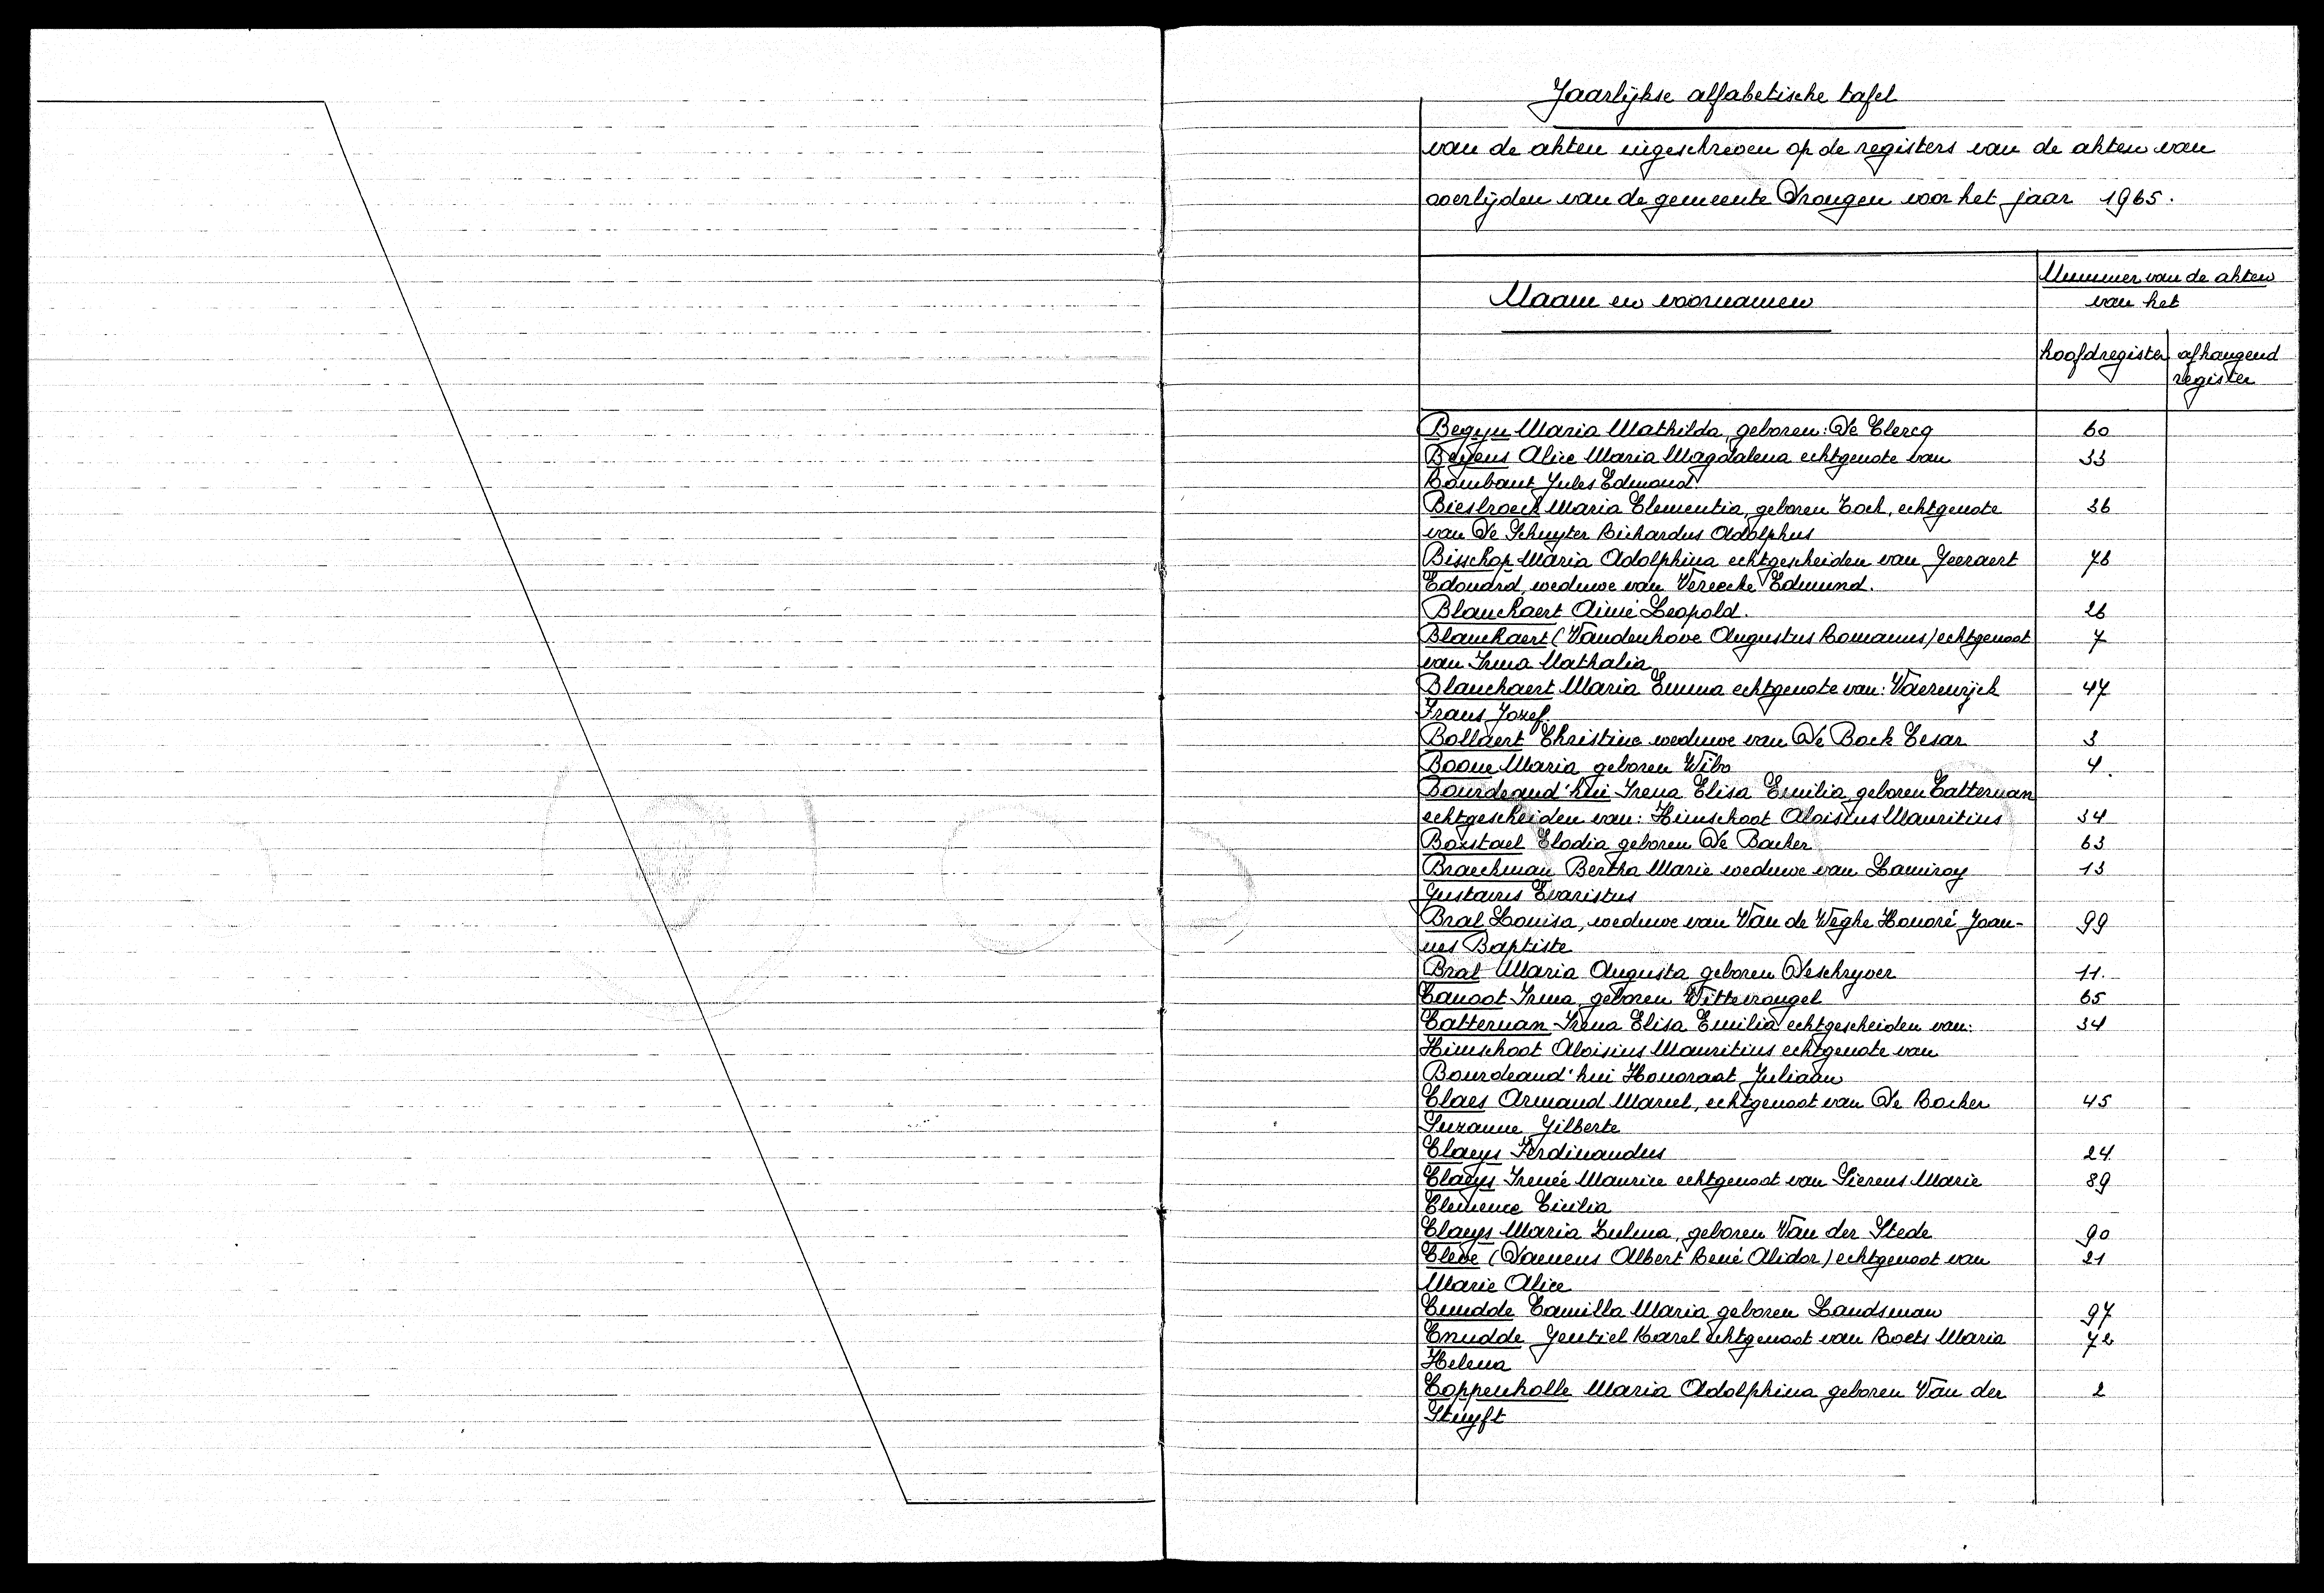 Jaarlijkse alfabetische tafel
van de akten ingeschreven op de registers van de akten van
overlijden van de gemeente Drongen voor het jaar 1965.
Naam en voornamen
Nummer van de akten
van het
hoofdregister
afhangend
register
Begyn Maria Mathilda, geboren: De Clercq 60
Beyens Alice Maria Magdalena echtgenote van 33
Rombaut Jules Edmond
Biesbroeck Maria Clementia, geboren Cock, echtgenote 36
van De Schuyter Richardus Adolphus
Bisschop Maria Adolphina echtgescheiden van Geeraert 76
Edouard, weduwe van Vereecke Edmund.
Blanchaert Aimé Leopold. 26
Blanchaert (Vandenhove Augustus Romanus) echtgenoot 7
van Irma Nathalia
Blanchaert Maria Emma echtgenote van: Vaerewijck 47
Frans Jozef
Bollaert Christine weduwe van De Bock Cesar 3
Boone Maria geboren Wibo 4.
Bourdeaud'hui Irena Elisa Emilia geboren Catteman
echtgescheiden van: Himschoot Aloisius Mauritius 34
Borstael Elodia geboren De Backer 63
Braeckman Bertha Marie weduwe van Lamiroy 13
Gustavus Evaristus
Bral Louisa, weduwe van Van de Weghe Honoré Joan- 99
nes Baptiste
Bral Maria Augusta geboren Deschryver 11.
Canoot Irma, geboren Wittevrongel 65
Catteman Irena Elisa Emilia echtgescheiden van: 34
Himschoot Aloisius Mauritius echtgenote van
Bourdeaud'hui Honoraat Juliaan
Claes Armand Marcel, echtgenoot van De Backer 45
Suzanne Gilberte
Claeys Ferdinandus 24
Claeys Irenée Maurice echtgenoot van Sierens Marie 89
Clemence Cicilia
Claeys Maria Zulma, geboren Van der Stede 90
Cleve (Daenens Albert René Alidor) echtgenoot van 21
Marie Alice
Cnudde Camilla Maria geboren Landsman 97
Cnudde Gentiel Karel echtgenoot van Roets Maria 72
Helena
Coppenholle Maria Adolphina geboren Van der 2
Stuyft